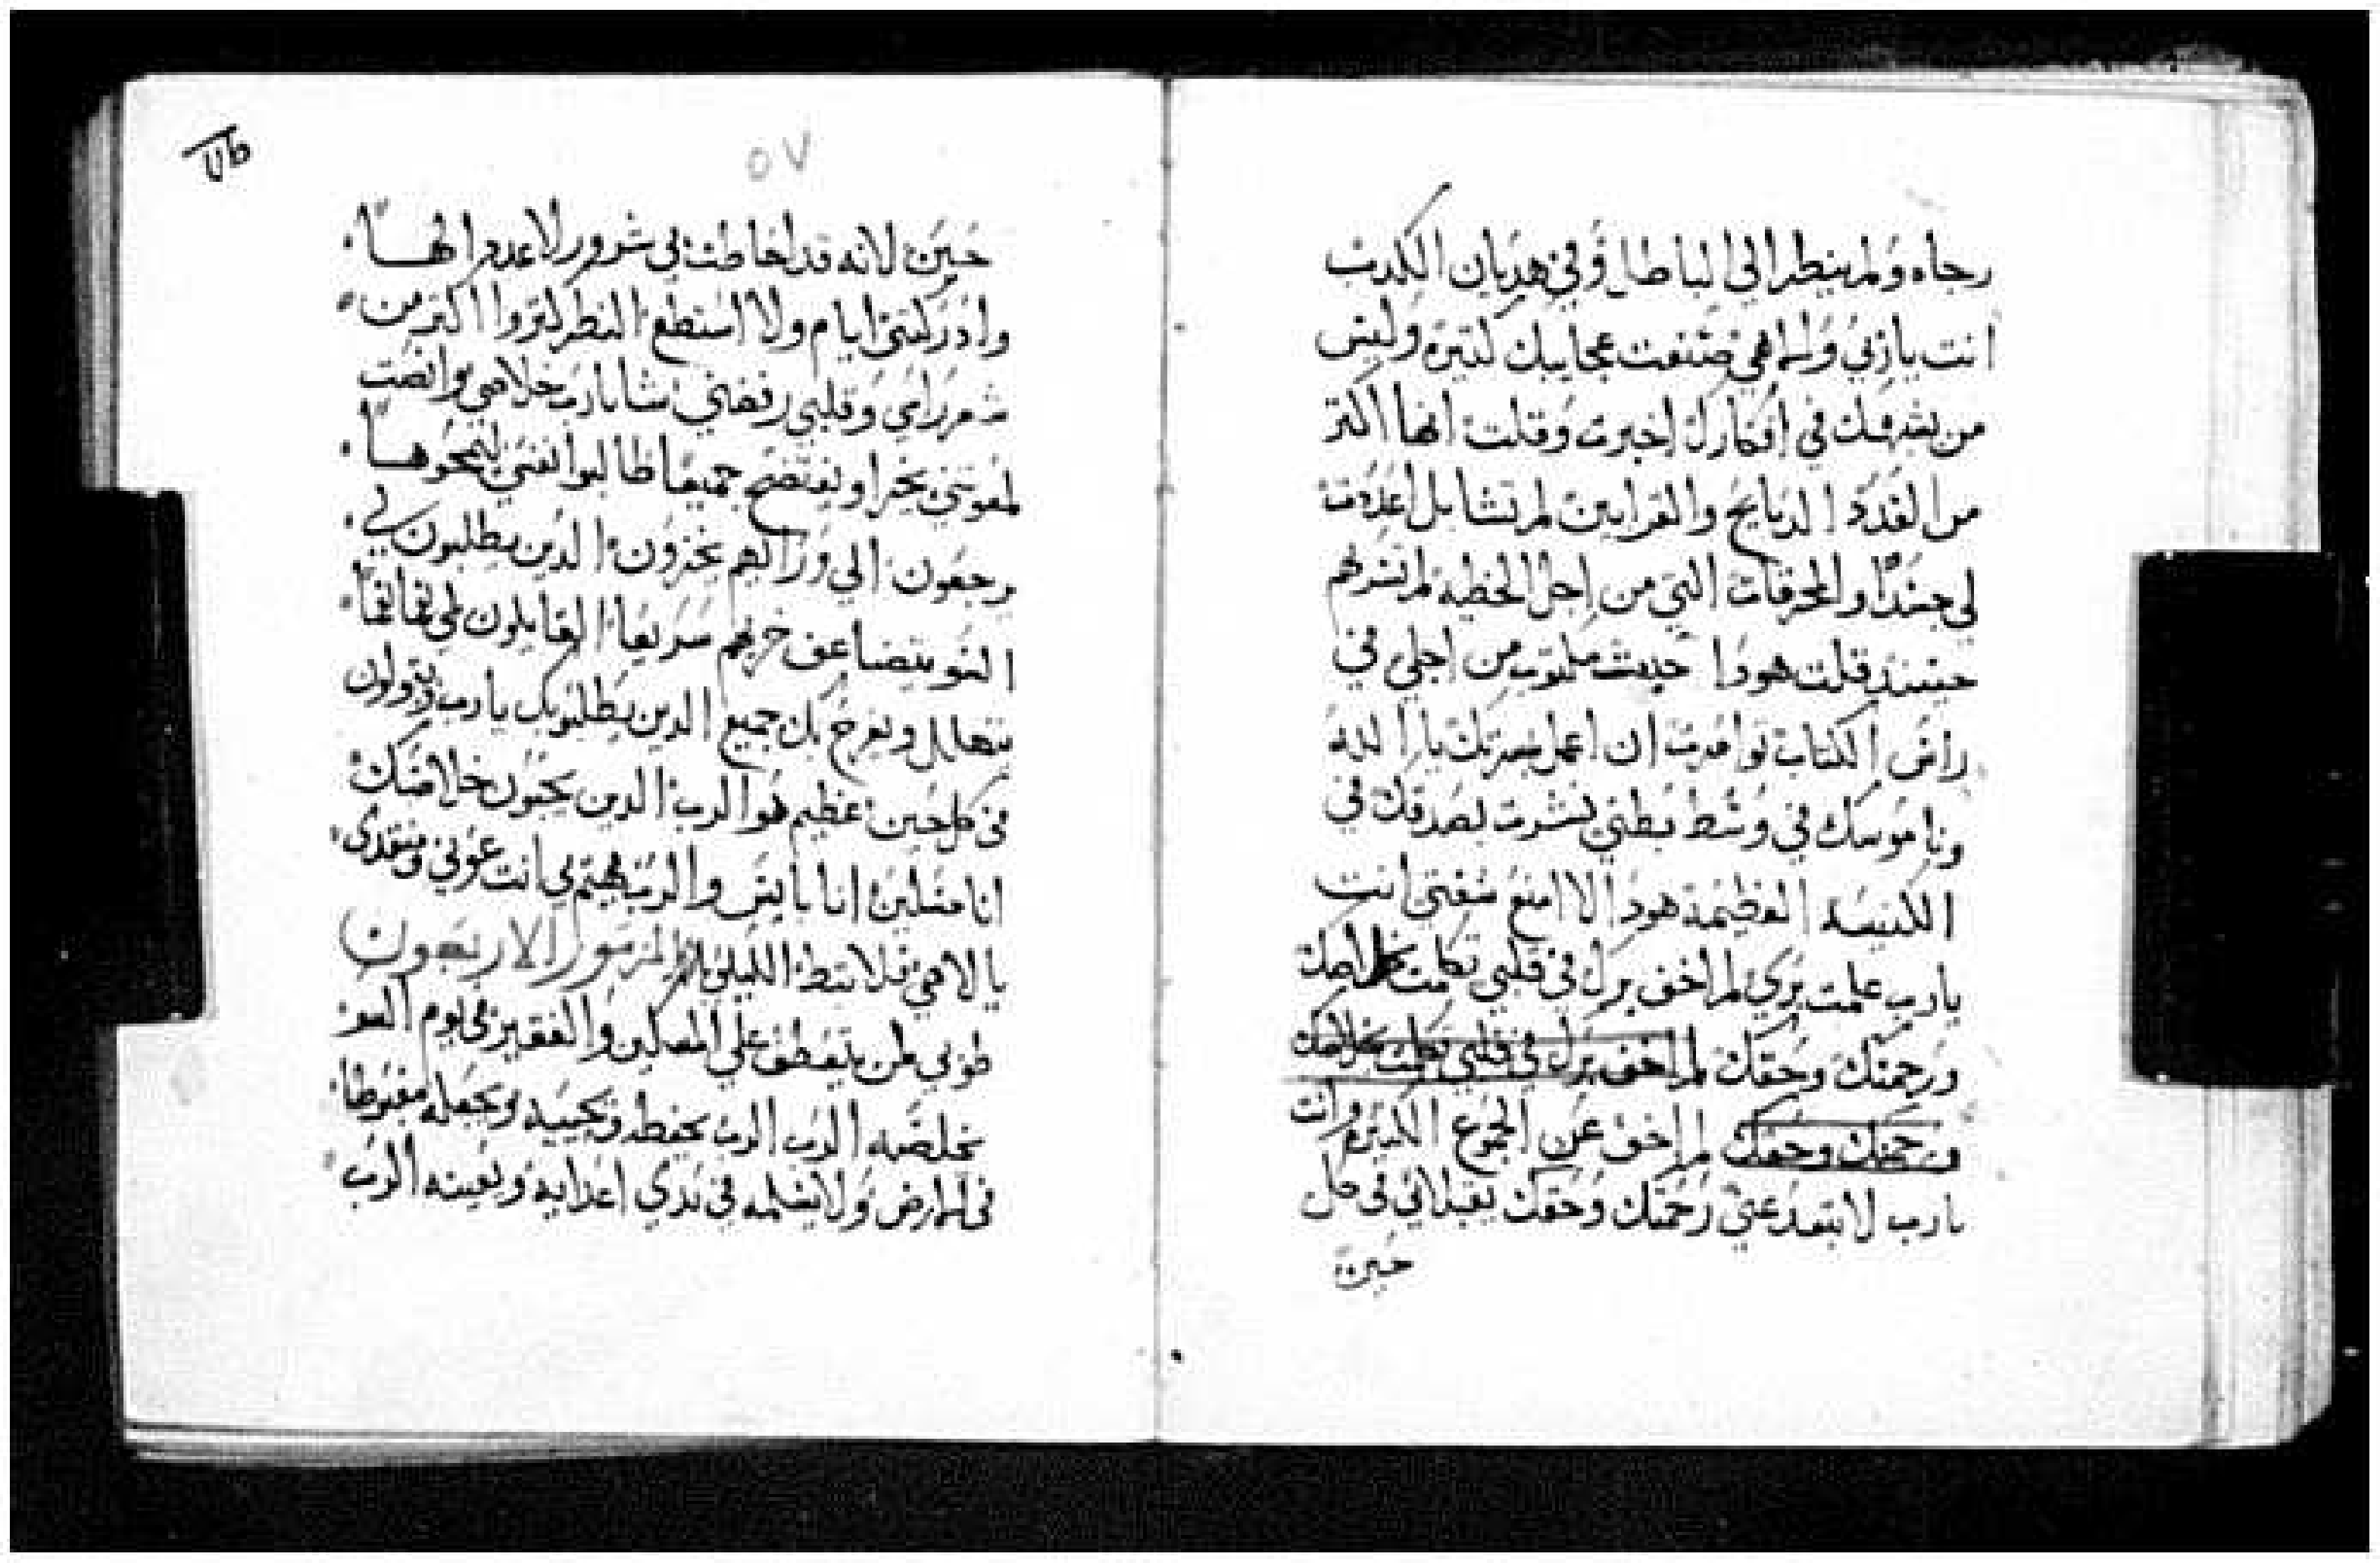 رجاه ولم ينظر الي الباطل وفي هديان الكدب
انت يا ربي والهي صنعت عجايبك كتيره وليس
من يشبهك في افكارك اخبرت وقلت انها اكتر
من العدد الدبايح والقرابين لم تشا بل اعددت
لي جسدًا والمحرقات التي من اجل الخطيه لم تسرهم
حينيد قلت هودا جيت مكتوب من اجلي في
راس الكتاب توامرت ان اعمل بمسرتك يا الله
وناموسك في وسط بطني بشرت بصدقك في
الكنيسه العظيمة هودا لا امنع شفتي انت
يارب علمت بري لم اخف برك في قلبي تكلمت بخلاصك
ورحمتك وحقك لم اخف برك في قلبي تكلمت بخلاصك
ورحمتك وحقك لم اخف عن الجموع الكتيره وانت
يارب لا تبعد عني رحمتك وحقك يقبلاني في كل
حين
٥٧
حين لانه قد احاطت بي شرور لا عدد لها
وادركتني ايام ولا استطع النظر كتروا اكتر من
شعر راسي وقلبي رفضني شا يارب خلاصي وانصت
لمعونتي يخزا ويفتضح جميعا طالبوا نفسي
يرجعون الي ورايهم يخزون الدين يطلبون لي
السو يتضاعف خزيهم سريعا القايلون لي نعما نعما
يتهلل ويفرح بك جميع الدين يطلبوك يارب ويقولون
في كل حين عظيم هو الرب الدين يحبون خلاصك
انا مسكين انا بايس والرب مهتم بي انت عوني ومنقدي
يا الاهي فلا تبط المزمور الاربعون
طوبي لمن يتعطف علي المسكين والفقير في يوم السو
يخلصه الرب الرب يحفطه ويحييه ويجعله مغبوطا
في الارض ولا يسلمه في يدي اعدايه ويعينه الرب